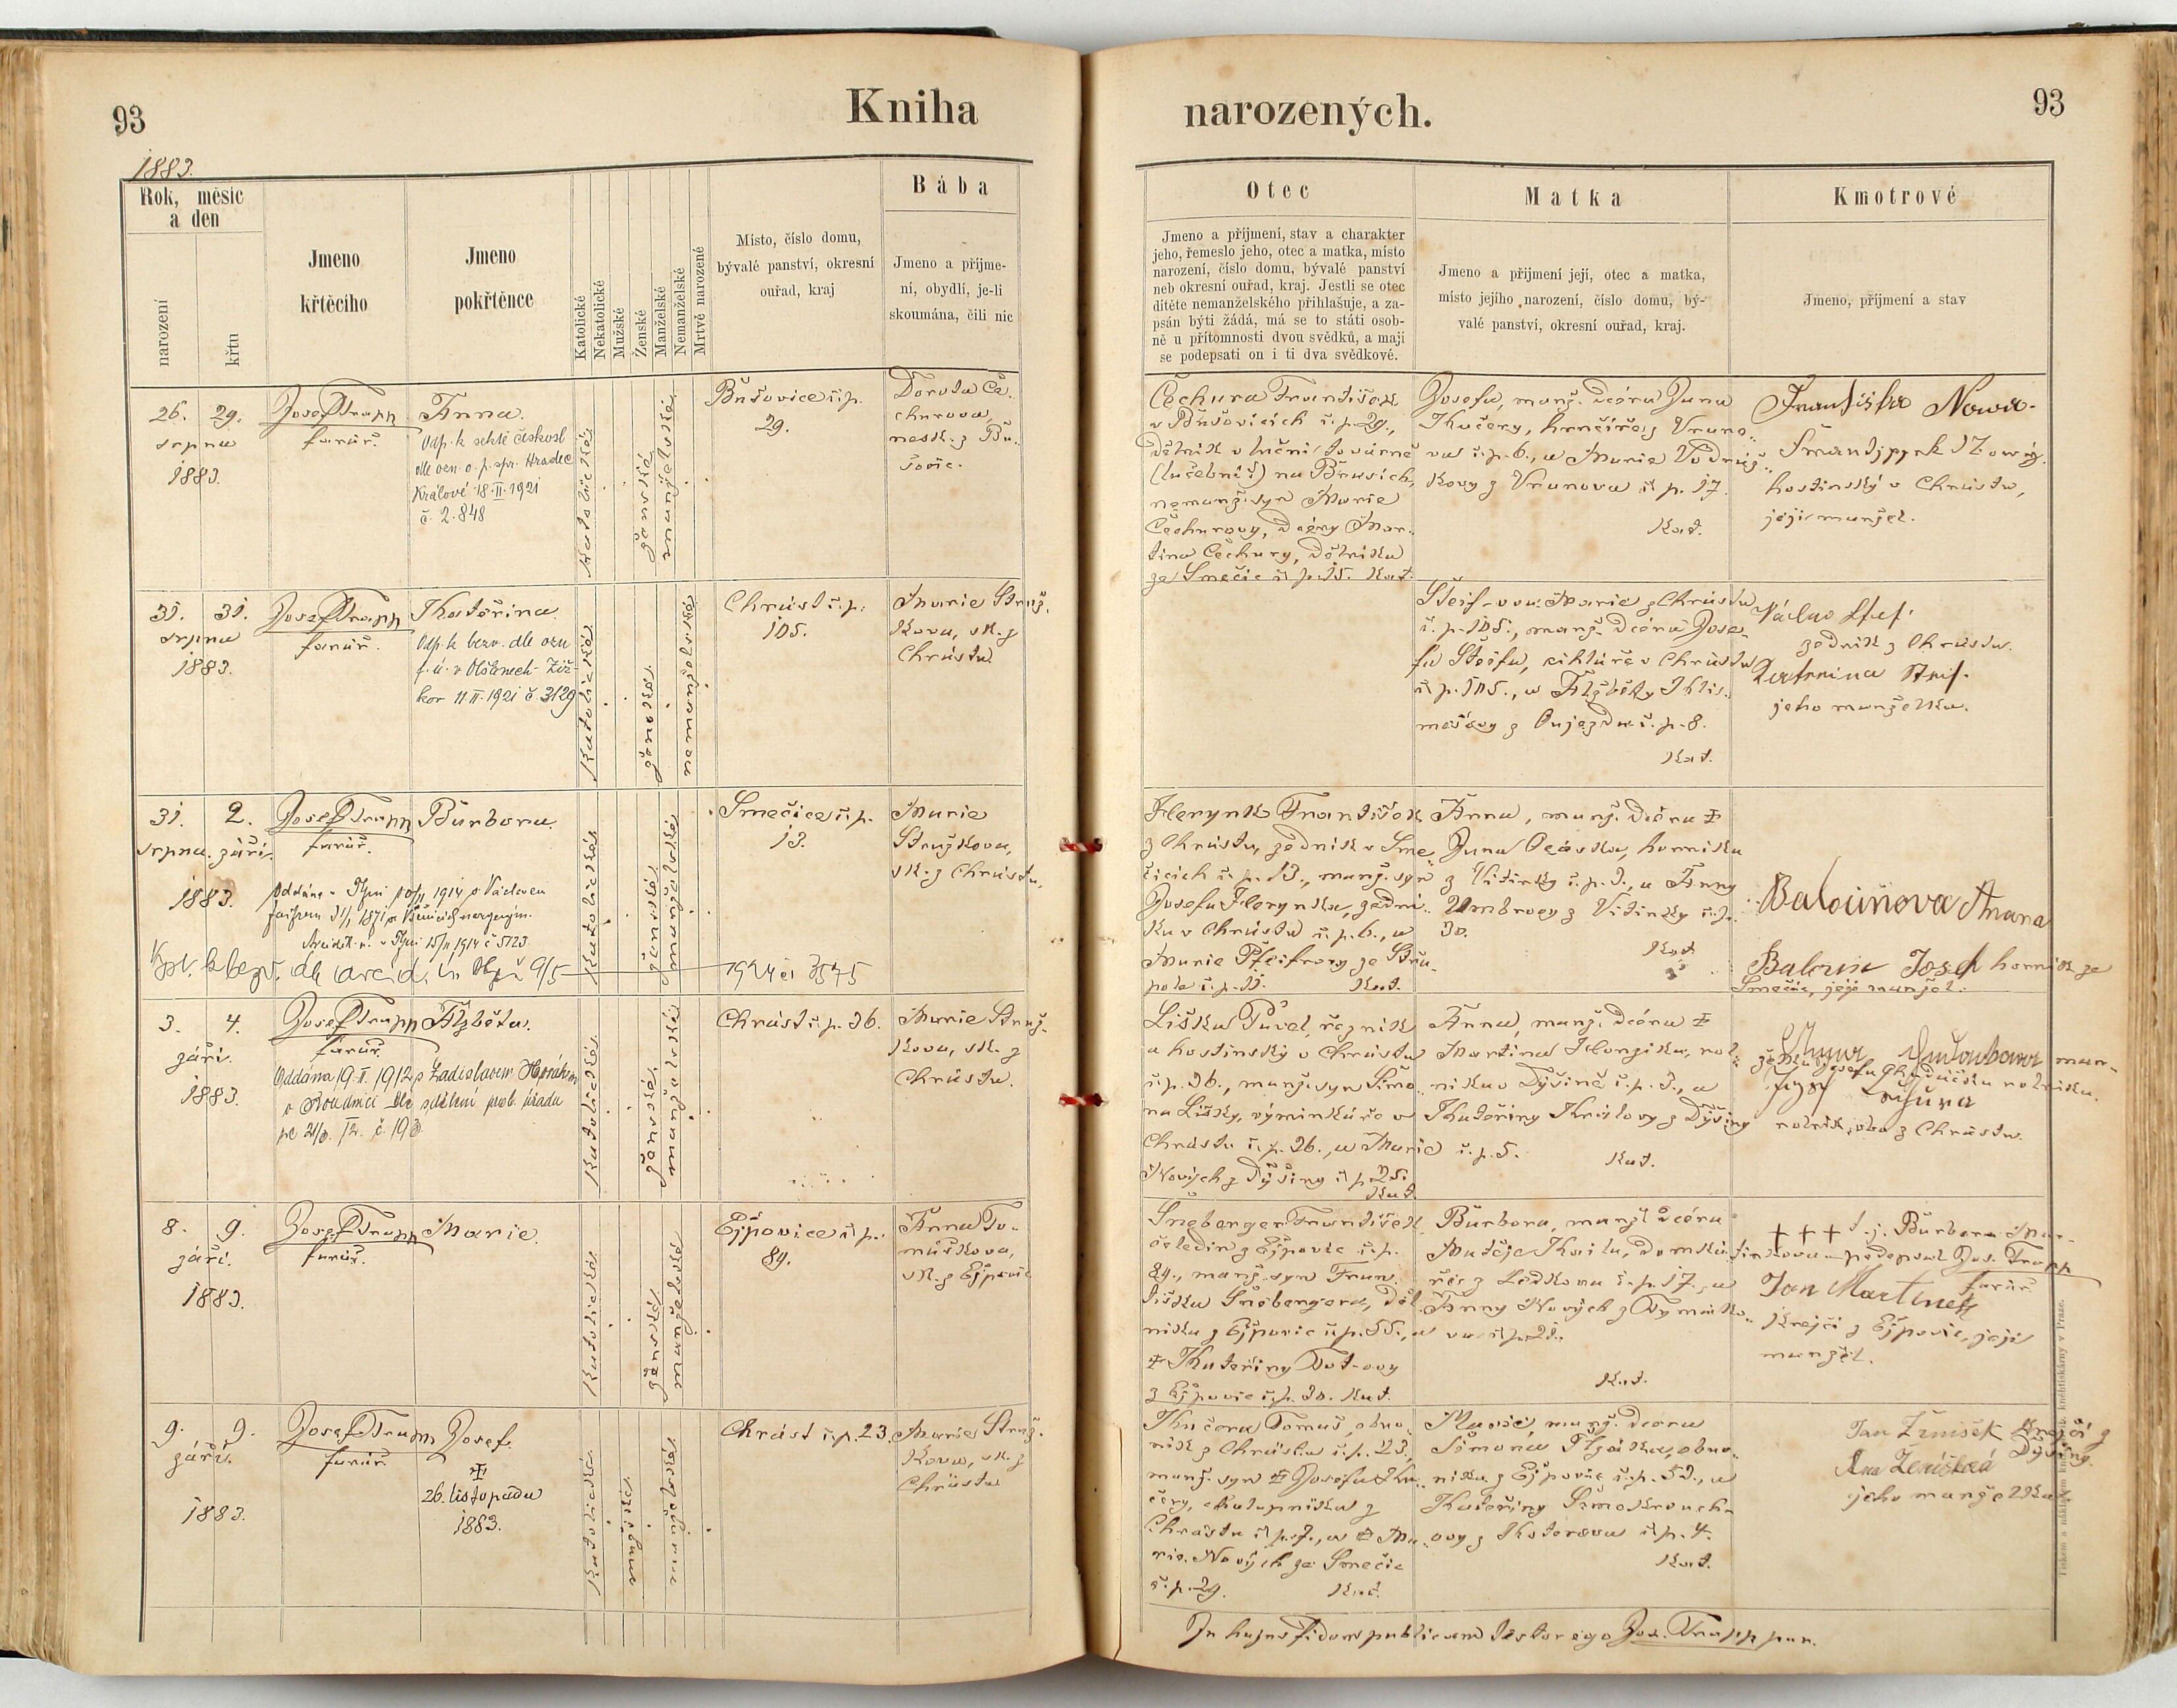 93
Kniha
narozených.
93
1883.
Rok, měsíc
a den
narození
křtu
Jmeno
křtěcího
Jmeno
pokřtěnce
Katolické
Nekatolické
Mužské
Ženské
Manželské
Nemanželské
Mrtvě narozené
Místo, číslo domu,
bývalé panství, okresní
ouřad, kraj
Bába
Jmeno a příjme-
ní, obydlí, je-li
skoumána, čili nic
Otec
Jmeno a příjmení, stav a charakter
jeho, řemeslo jeho, otec a matka, místo
narození, číslo domu, bývalé panství
neb okresní ouřad, kraj. Jestli se otec
dítěte nemanželského přihlašuje, a za-
psán býti žádá, má se to státi osob-
ně u přítomnosti dvou svědků, a mají
se podepsati on i ti dva svědkové.
Matka
Jmeno a příjmení její, otec a matka,
místo jejího narození, číslo domu, bý-
valé panství, okresní ouřad, kraj.
Kmotrové
Jmeno, příjmení a stav
26. 29.
srpna
1883.
Josef Trapp
farář.
Anna.
Odp. k sektě českosl
dle ozn. o. p. spr. Hradec
Králové 18. II. 1921
č. 2.848
katolické
ženské
manželské
Bušovice č. p.
29.
Dorota Če-
churova,
nezk. z Bu-
šovic.
Čechura František
v Bušovicích č. p. 29.,
dělník v lučební továrně
(lučebníř) na Břasích,
nemanž. syn Marie
Čechurovy, dcery Mar-
tina Čechury, dělníka
ze Smečic č. p. 15. Kat.
Josefa, manž. dcera Jana
Kučery, hrnčíře z Vrano-
va č. p. 6., a Marie Vodráž-
kovy z Vranova č. p. 17.
Kat.
Františka Nowa-
František Nowý
hostinský v Chrástu,
její manžel.
31. 31.
srpna
1883.
Josef Trapp
farář.
Kateřina.
Odp. k bezv. dle ozn
f. ú. v Olšanech-Žiž-
kov 11 II. 1921 č 3129
katolické
ženské
nemanželské
Chrást č. p.
105.
Marie Struž-
kova, zk. z
Chrástu.
Šteif-ova Marie z Chrástu
č. p. 105., manž. dcera Jose-
fa Šteifa, cihláře v Chrástu
č. p. 105., a Alžběty Kli-
mešovy z Oujezda č. p. 8.
Kat.
Václav Štef.
zedník z Chrástu.
Katerina Štef.
jeho manželka.
31. 2.
srpna. září.
1883.
Josef Trapp
farář.
Barbora.
katolické
ženské
manželské
Smečice č. p.
13.
Marie
Stružkova,
zk. z Chrástu.
Oddána v Plzni 10/II 1914 s Václavem
1924 čj 3575
Florynk František
z Chrástu, zedník v Sme-
čicích č. p. 13., manž. syn
Josefa Florynka, zední-
ka v Chrástu č. p. 6., a
Marie Pfeifrovy ze Stu-
pola č. p. 11. Kat.
Anna, manž. dcera ‡
z Vitinky č. p. 3., a Anny
Kat.
Balounova Anana
Baloun Josef horník ze
Smečic, její manžel.
3. 4.
září.
1883.
Josef Trapp
farář.
Alžběta.
Oddána 19. II. 1912 s Ladislavem Horákem
v Roudnici dle sdělení
katolické
ženské
manželské
Chrást č. p. 36.
Marie Struž-
kova, zk. z
Chrástu.
Liška Pavel, řezník
a hostinský v Chrástu
č. p. 36., manž. syn Šimo-
na Lišky, výminkáře v
Chrástu č. p. 36., a Marie
Nových z Dýšiny č. p. 25.
Kat.
Anna, manž. dcera ‡
Martina Honzíka, rol-
níka v Dýšině č. p. 3., a
Kateřiny Královy z Dýšiny
č. p. 5. Kat.
rolník, oba z Chrástu.
8. 9.
září.
1883.
Josef Trapp
farář.
Marie.
katolické
ženské
manželské
Ejpovice č. p.
89.
Anna To-
máškova,
zk. z Ejpovic
Šneberger František
čeledín z Ejpovic č. p.
89., manž. syn Fran-
tiška Šnebergera, děl-
níka z Ejpovic č. p. 55., a
‡ Kateřiny Tot-ovy
z Ejpovic č. p. 30. Kat.
Barbora, manž. dcera
Matěje Kvita, domká-
ře z Letkova č. p. 17., a
Anny Nových z Tymáko-
va č. p. 21.
Kat.
+ + + t. j. Barbora Mar-
tinkova podepsal Jos. Trapp
farář.
Jan Martinek
krejčí z Ejpovic, její
manžel.
9. 9.
září.
1883.
Josef Trapp
farář.
Josef.
‡
26. listopadu
1883.
katolické
mužské
manželské
Chrást č. p. 23.
Marie Struž-
kova, zk. z
Chrástu
Kučera Tomáš, obuv-
ník z Chrástu č. p. 23.,
manž. syn ‡ Josefa Ku-
čery, chalupníka z
Chrástu č. p. 7., a ‡ Ma-
rie Nových ze Smečic
č. p. 29. Kat.
Marie, manž. dcera
Šimona Plzáka, obuv-
níka z Ejpovic č. p. 53., a
Kateřiny
ovy z Kokorova č. p. 4.
Kat.
Jan Ženíšek krejčí z
Dýšiny.
Ana Ženíšková
jeho manželka.
In hujus fidem publicam testor ego Jos. Trapp par.
Tiskem a nákladem knihtiskárny v Praze.